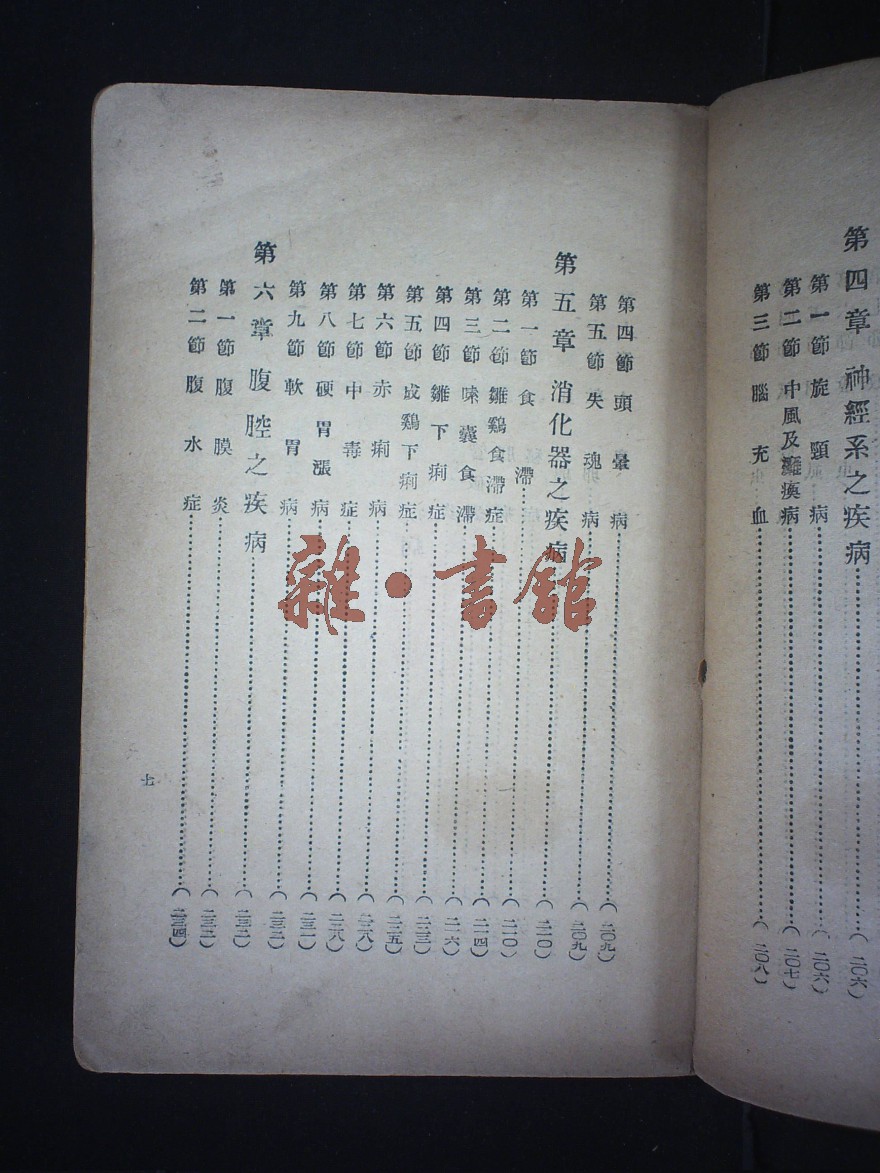 第四章 神經系之疾病…(二〇六)
第一節 旋頸病…(二〇六)
第二節 中風及癱瘓病…(二〇七)
第三節 腦充血…(二〇八)
第四節 頭暈病…(二〇九)
第五節 失魂病…(二〇九)
第五章 消化器之疾病…(二一〇)
第一節 食滯
第二節 雛鷄食滯症…(二一〇)
第三節 味囊食滯…(二一四)
第四節 雛下痢症…(二一六)
第五節 成鷄下痢症
第六節 赤痢病…(二二五)
第七節 中毒症…(二二八)
第八節 硬胃漲病…(二二八)
第九節 軟胃病…(二三一)
第六章 腹腔之疾病
第一節 腹膜炎
第二節 腹水症…(二三四)
七
雜·書館